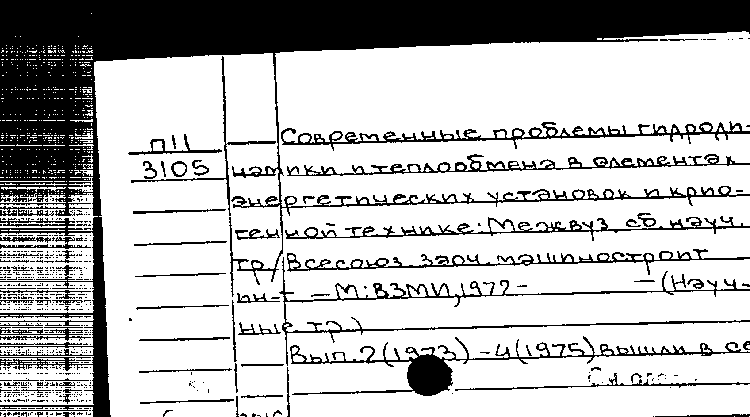 П11
3105
Современные проблемы гидроди-
намики и теплообмена в элементах
энергетических установок и крио-
генной технике: Межвуз. сб. науч.
тр/Всесоюз. заоч. машиностроит
ин-т – М: ВЗМИ, 1972-    – (Науч-
ные тр.)
Вып. 2 (1973) – 4 (1975) вышли в се
См.